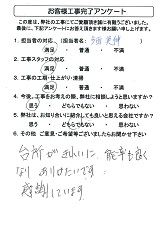 お客様工事完了アンケート
この度は、弊社の工事にてご発注頂き誠に有難うございました。
最後に、下記アンケートにお答え頂きます様お願い申し上げます。
1. 担当者の対応 (担当者名:
満足 ・ 普通 ・ 不満
2. 工事スタッフの対応
満足 ・ 普通 ・ 不満
3. 工事の工期・仕上がり・清掃
満足 ・ 普通 ・ 不満
4. 今後、工事をお考えの際、弊社に相談しようと思いますか?
思う ・ どちらでもない ・ 思わない
5. 弊社は、お知り合いに紹介しても良いと思える会社ですか?
思う ・ どちらでもない ・ 思わない
6. その他 ご意見・ご希望等ございましたらお聞かせ下さい
台所がきれいに、能率も良く
なり ありがたいです
感謝しています